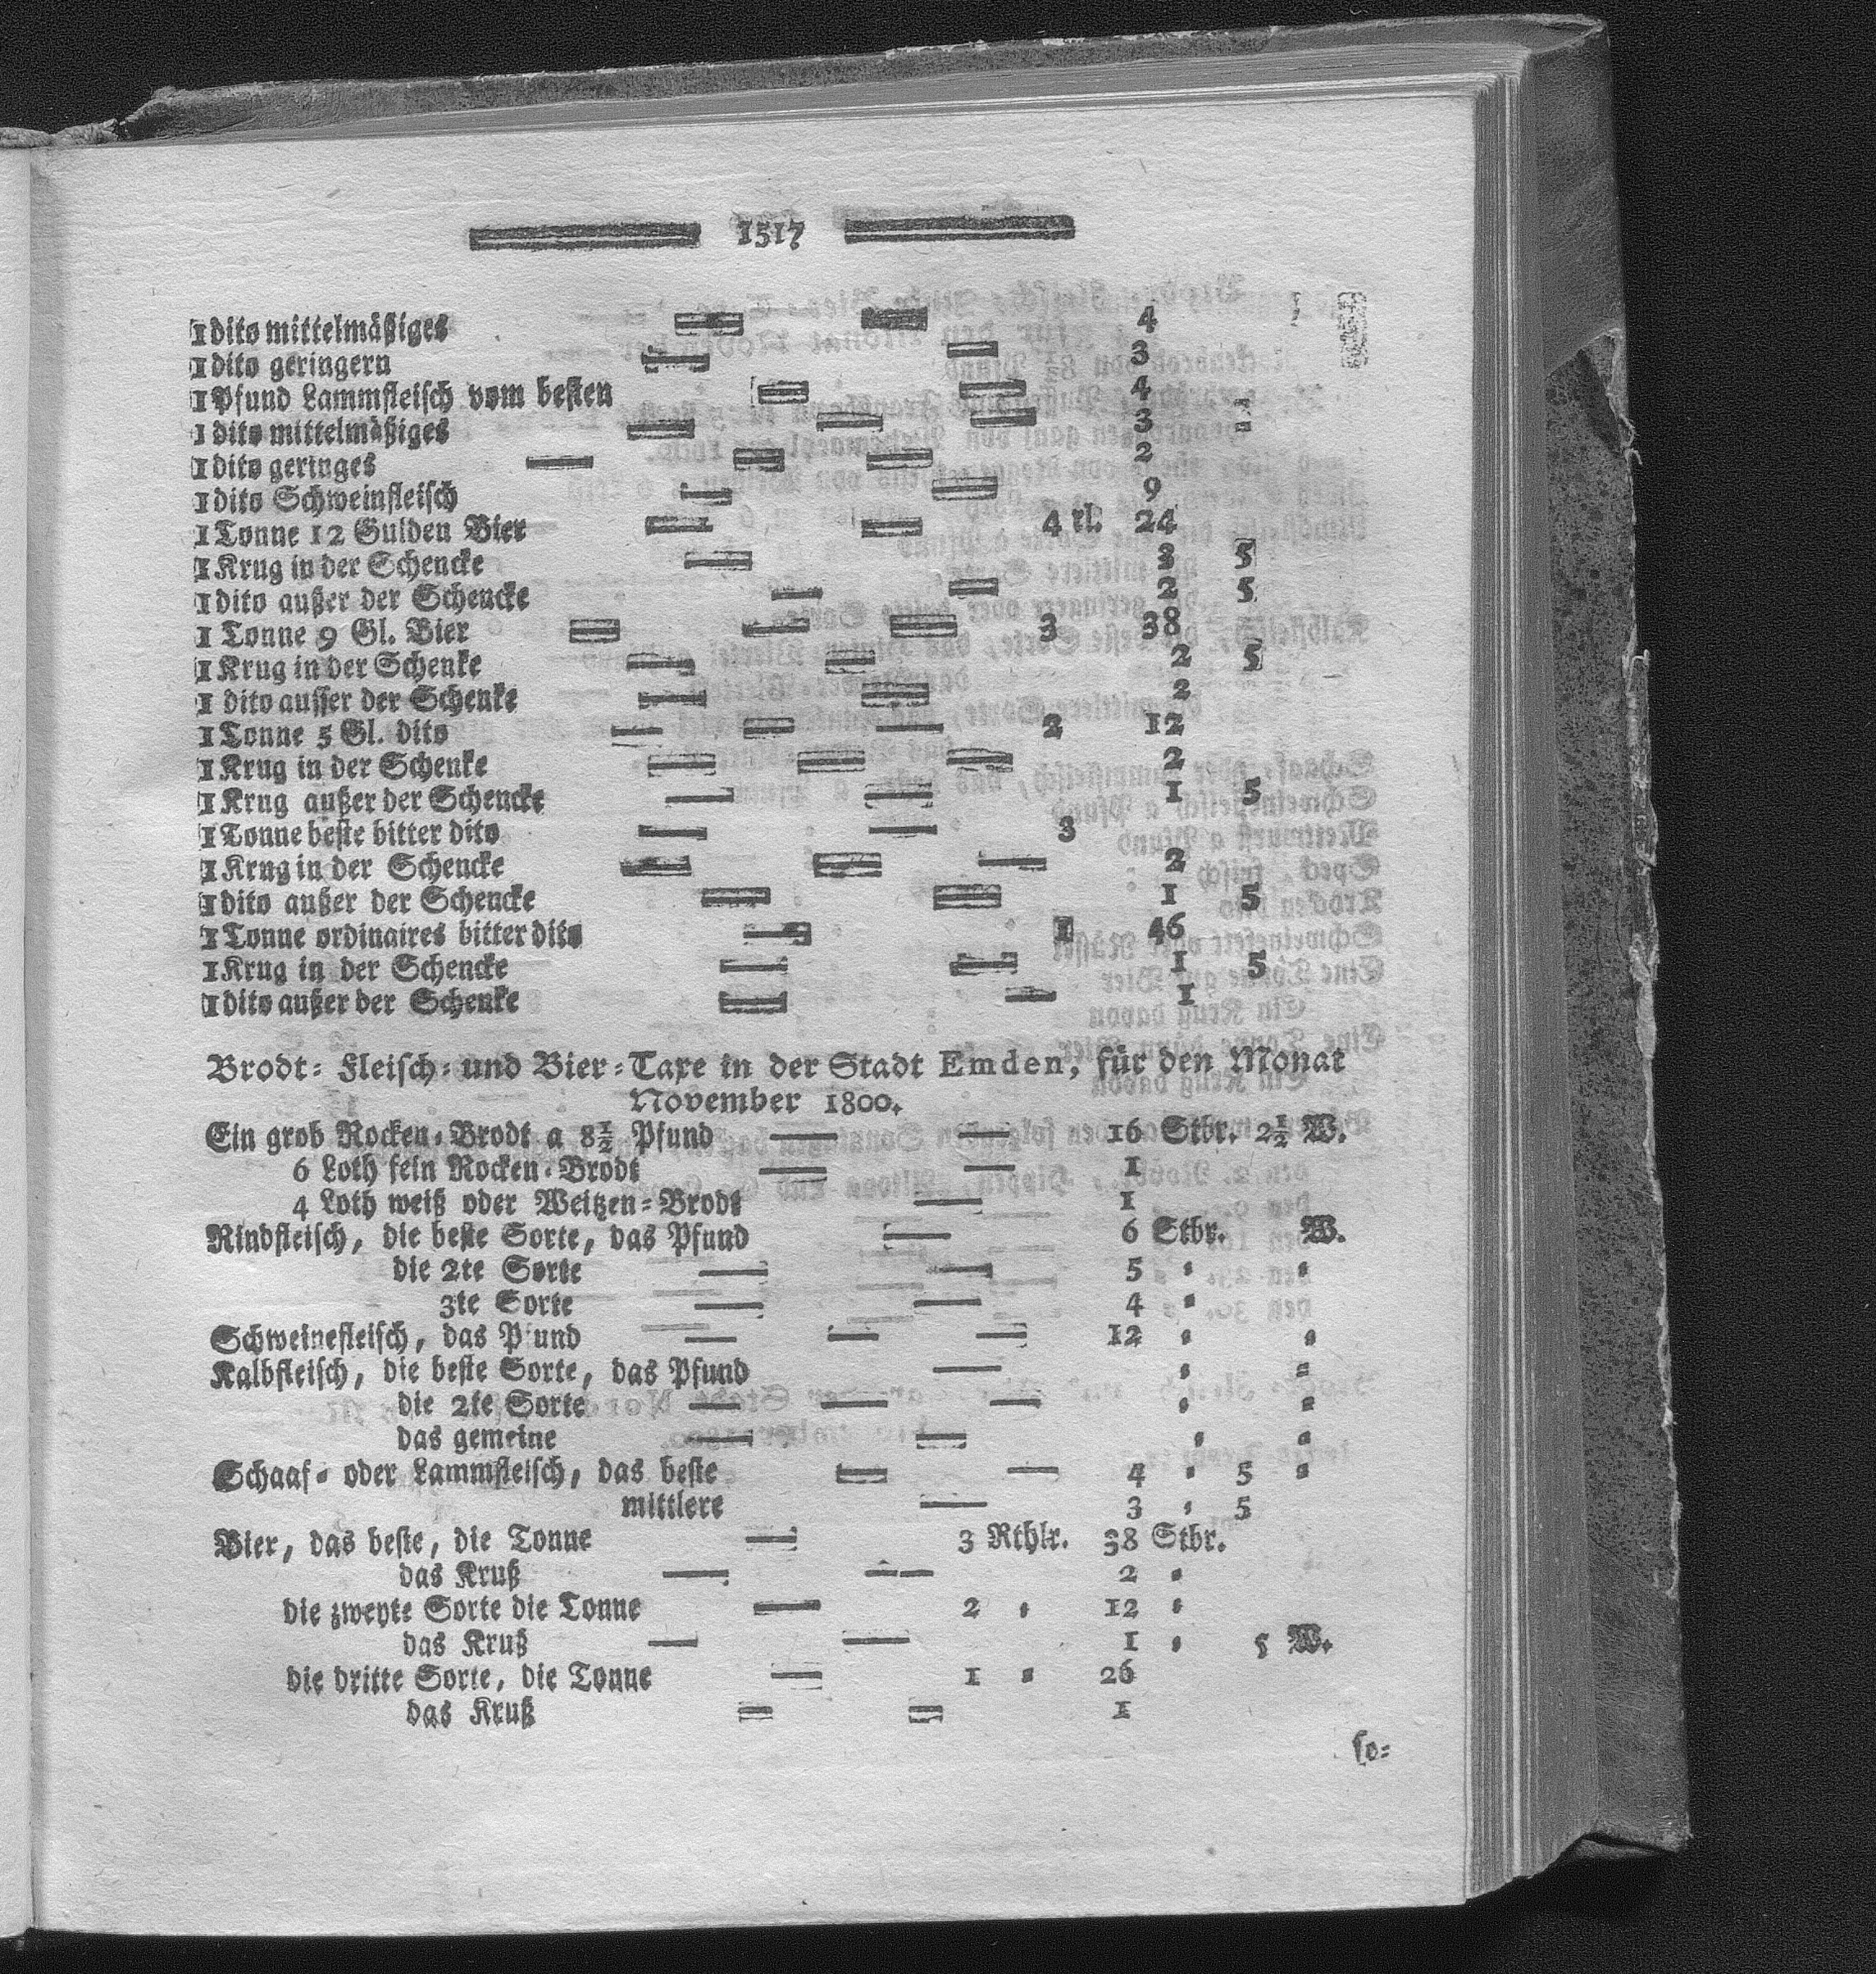 1517
1 dito mittelmäßiges — — 4
1 dito geringern — — 3
1 Pfund Lammfleisch vom besten — — 4
1 dito mittelmäßiges — — — 3
1 dito geringes — — — 2
1 dito Schweinfleisch — — 9
1 Tonne 12 Gulden Bier — — 4 rl. 24
1 Krug in der Schencke — 3 5
1 dito außer der Schencke — — 2 5
1 Tonne 9 Gl. Bier — — — 3 38
1 Krug in der Schenke — — 2 5
1 dito ausser der Schenke — — 2
1 Tonne 5 Gl. dito — — — 2 12
1 Krug in der Schenke — — — 2
1 Krug außer der Schencke — — 1 5
1 Tonne beste bitter dito — — 3
1 Krug in der Schencke — — — 2
1 dito außer der Schencke — — 1 5
1 Tonne ordinaires bitter dito — 1 46
1 Krug in der Schencke — — 1 5
1 dito außer der Schenke — — 1
Brodt- Fleisch- und Bier-Taxe in der Stadt Emden, für den Monat
November 1800.
Ein grob Rocken-Brodt a 8½ Pfund — — 16 Stbr. 2½ W.
6 Loth fein Rocken-Brodt — — 1
4 Loth weiß oder Weitzen-Brodt — 1
Rindfleisch, die beste Sorte, das Pfund — 6 Stbr. W.
die 2te Sorte — — 5 - -
3te Sorte — — 4 -
Schweinefleisch, das Pfund — — — 12 - -
Kalbfleisch, die beste Sorte, das Pfund — - -
die 2te Sorte — — — - -
das gemeine — — - -
Schaaf- oder Lammfleisch, das beste — — 4 - 5 -
mittlere — 3 - 5
Bier, das beste, die Tonne — 3 Rthlr. 38 Stbr.
das Kruß — — 2 -
die zweyte Sorte die Tonne — 2 - 12 -
das Kruß — — 1 - 5 W.
die dritte Sorte, die Tonne — 1 - 26
das Kruß — — 1
so-